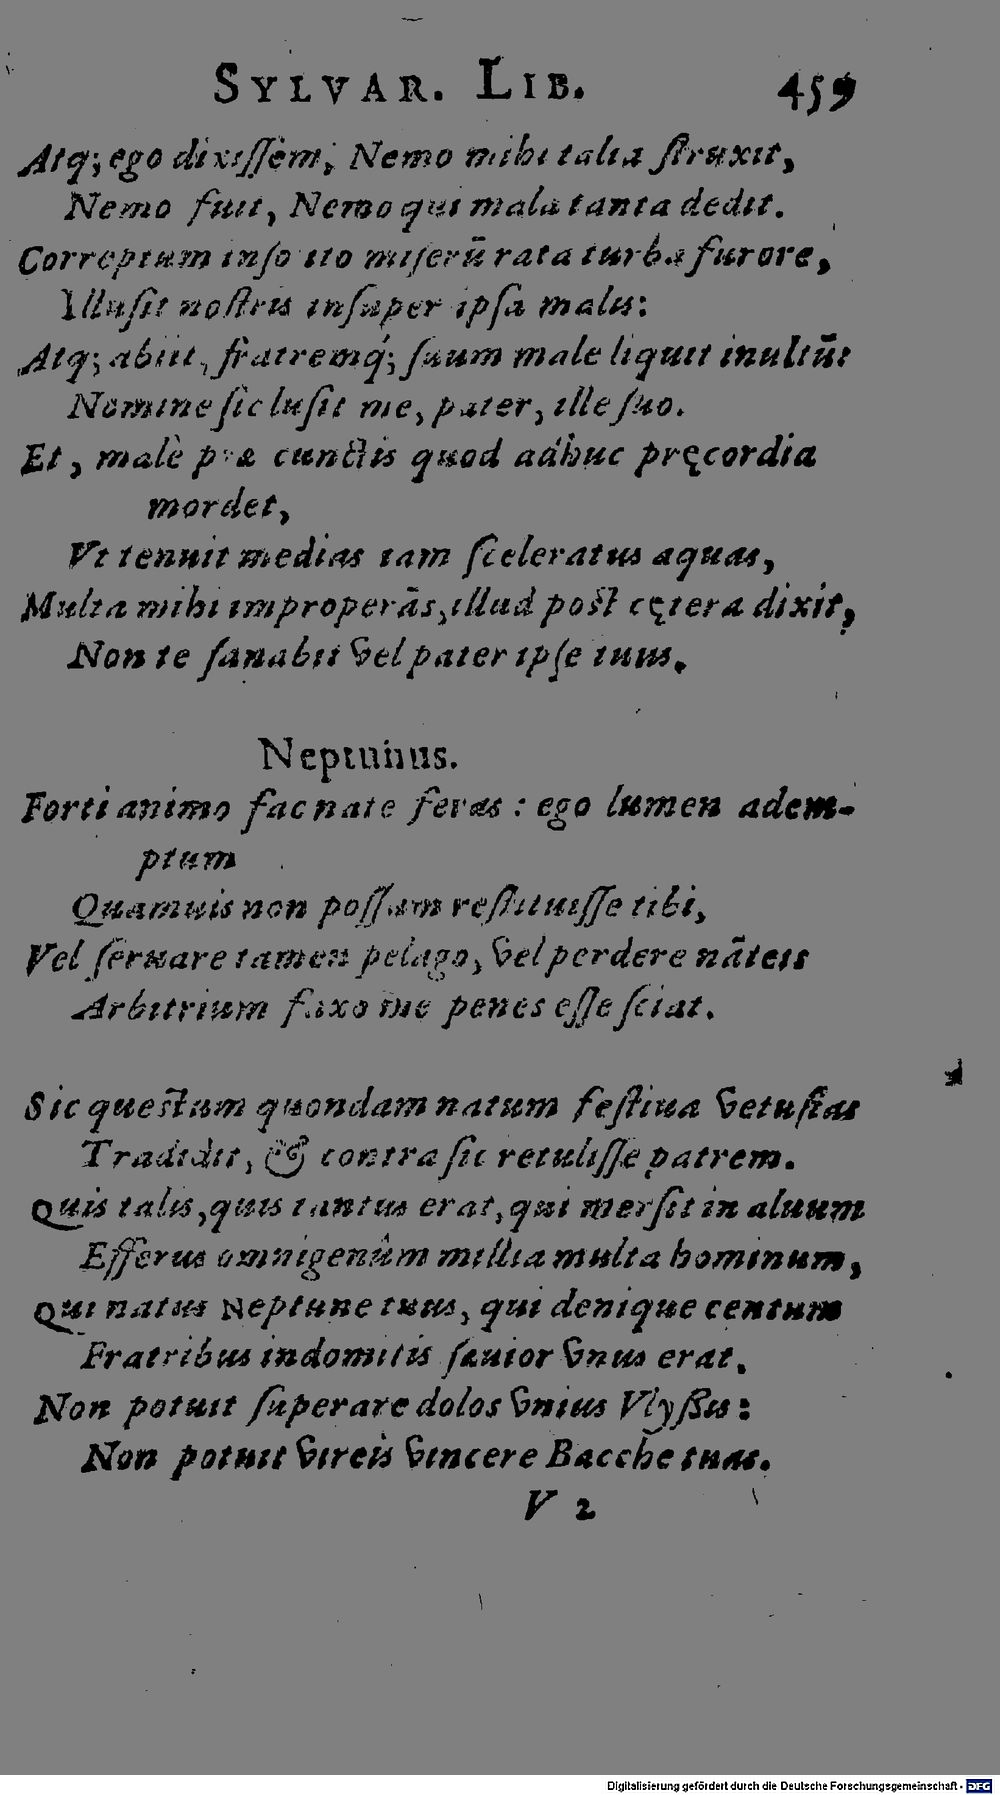 SYLVAR. LIB. 459
Atq; ego dixissem, Nemo mihi talia struxit,
Nemo fuit, Nemo qui mala tanta dedit.
Correptum insolito miserū rata turba furore,
Illusit nostris insuper ipsa malis:
Atq; abiit, fratremq́; suum male liquit inultū:
Nomine sic lusit me, pater, ille suo.
Et, malè præ cunctis quod adhuc pręcordia
mordet,
Vt tenuit medias iam sceleratus aquas,
Multa mihi improperās, illud post cętera dixit,
Non te sanabit vel pater ipse tuus.
Neptunus.
Forti animo fac nate feras: ego lumen adem-
ptum
Quamuis non possum restituisse tibi,
Vel seruare tamen pelago, vel perdere nāteis
Arbitrium faxo me penes esse sciat.
Sic questum quondam natum festiua vetustas
Tradidit, & contra sic retulisse patrem.
Quis talis, quis tantus erat, qui mersit in aluum
Efferus omnigenûm millia multa hominum,
Qui natus Neptune tuus, qui denique centum
Fratribus indomitis sæuior vnus erat.
Non potuit superare dolos vnius Vlyßis:
Non potuit vireis vincere Bacche tuas.
V 2
Digitalisierung gefördert durch die Deutsche Forschungsgemeinschaft - DFG